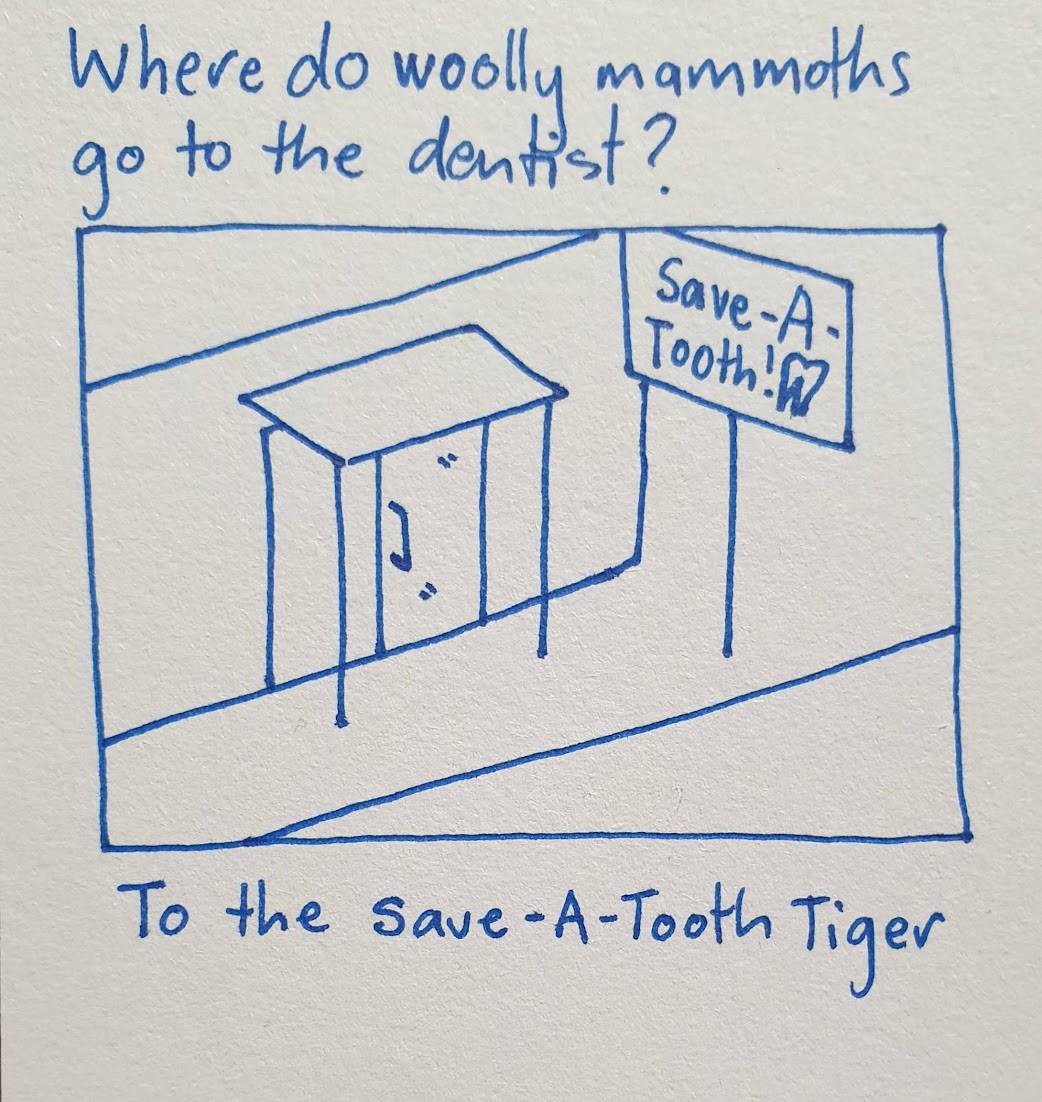 Where do woolly mammoths
go to the dentist?
Save-A-
Tooth!
To the Save-A-Tooth Tiger